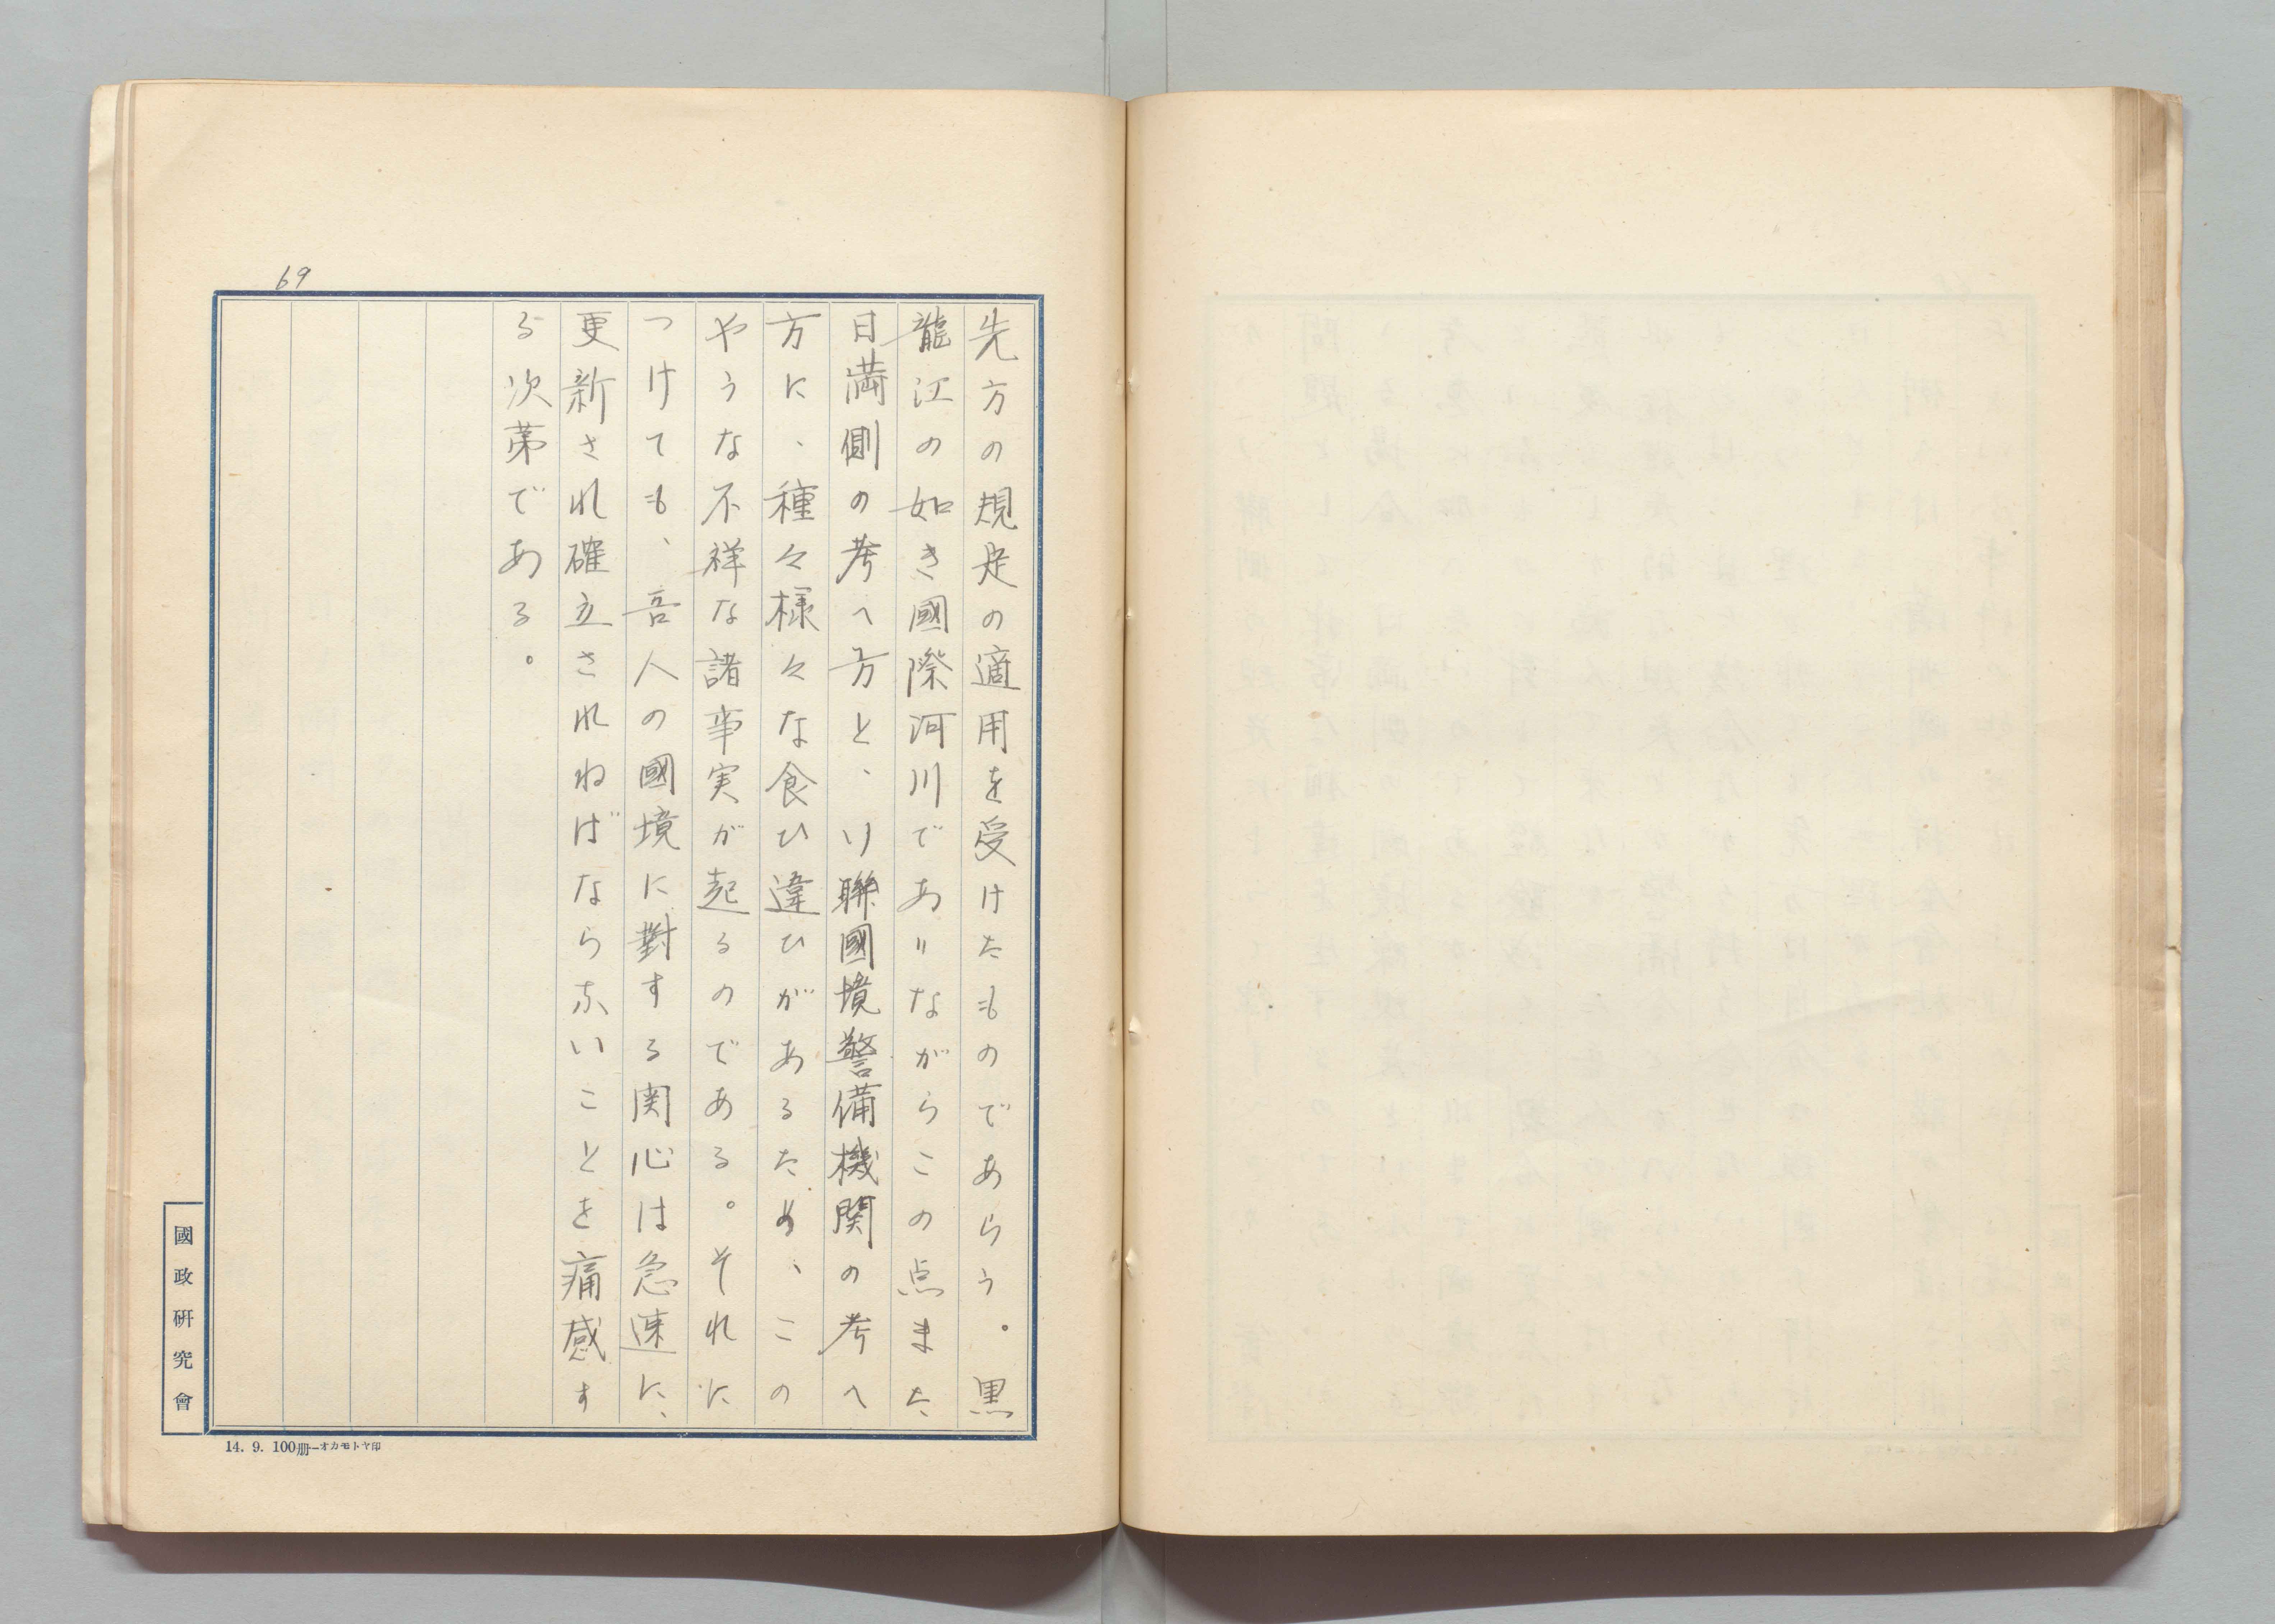 69
先方の規定の適用を受けたものであらう。黒
龍江の如き國際河川でありながらこの点また
日満側の考へ方と、ソ聯國境警備機関の考へ
方に、種々様々な食ひ違ひがあるため、この
やうな不祥な諸事実が起るのである。それに
つけても、吾人の國境に對する関心は急速に、
更新され確立されねばならないことを痛感す
る次第である。
國政研究會
14. 9. 100冊―オカモトヤ印